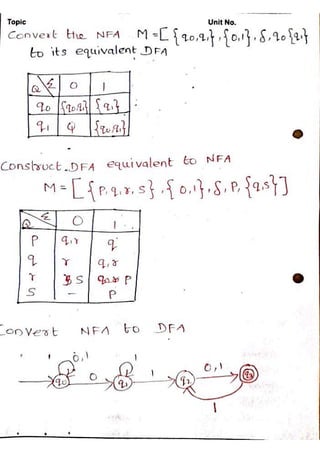 Topic Unit No.
Convert the NFA M = [ {q0, q1}, {0,1}, δ, q0 {q1}
to its equivalent DFA
Q Σ 0 1
q0 {q0,q1} {q1}
q1 φ {q0,q1}
Construct DFA equivalent to NFA
M = [ {P, q, r, S}, {0,1}, δ, P, {q,S} ]
Q Σ 0 1
P q,r q
q r q,r
r S P
S - P
Convert NFA to DFA
1 0,1 1 0,1
q0 0 q1 1 q2
1